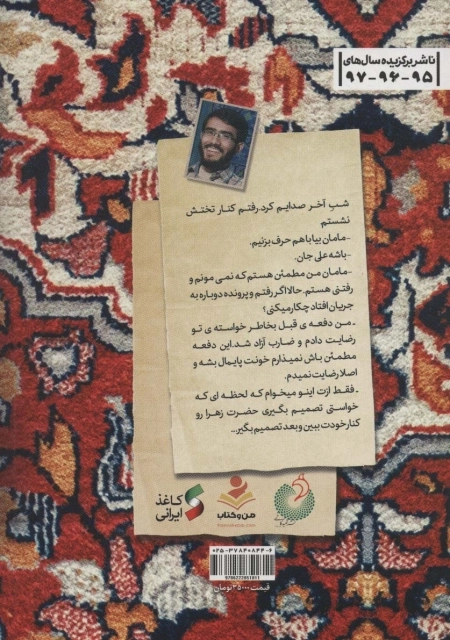 ناشر برگزیده سال‌های
۹۵-۹۶-۹۷
شب آخر صدایم کرد. رفتم کنار تختش
نشستم
-مامان بیا با هم حرف بزنیم.
-باشه علی جان.
-مامان من مطمئن هستم که نمی مونم و
رفتنی هستم. حالا اگر رفتم و پرونده دوباره به
جریان افتاد چکار میکنی؟
-من دفعه ی قبل بخاطر خواسته ی تو
رضایت دادم و ضارب آزاد شد. این دفعه
مطمئن باش نمیذارم خونت پایمال بشه و
اصلا رضایت نمیدم.
-فقط ازت اینو میخوام که لحظه ای که
خواستی تصمیم بگیری حضرت زهرا رو
کنار خودت ببین و بعد تصمیم بگیر...
کاغذ
ایرانی
من و کتاب
۰۲۵-۳۷۸۴۰۸۴۴-۶
قیمت ۳۵۰۰۰ تومان